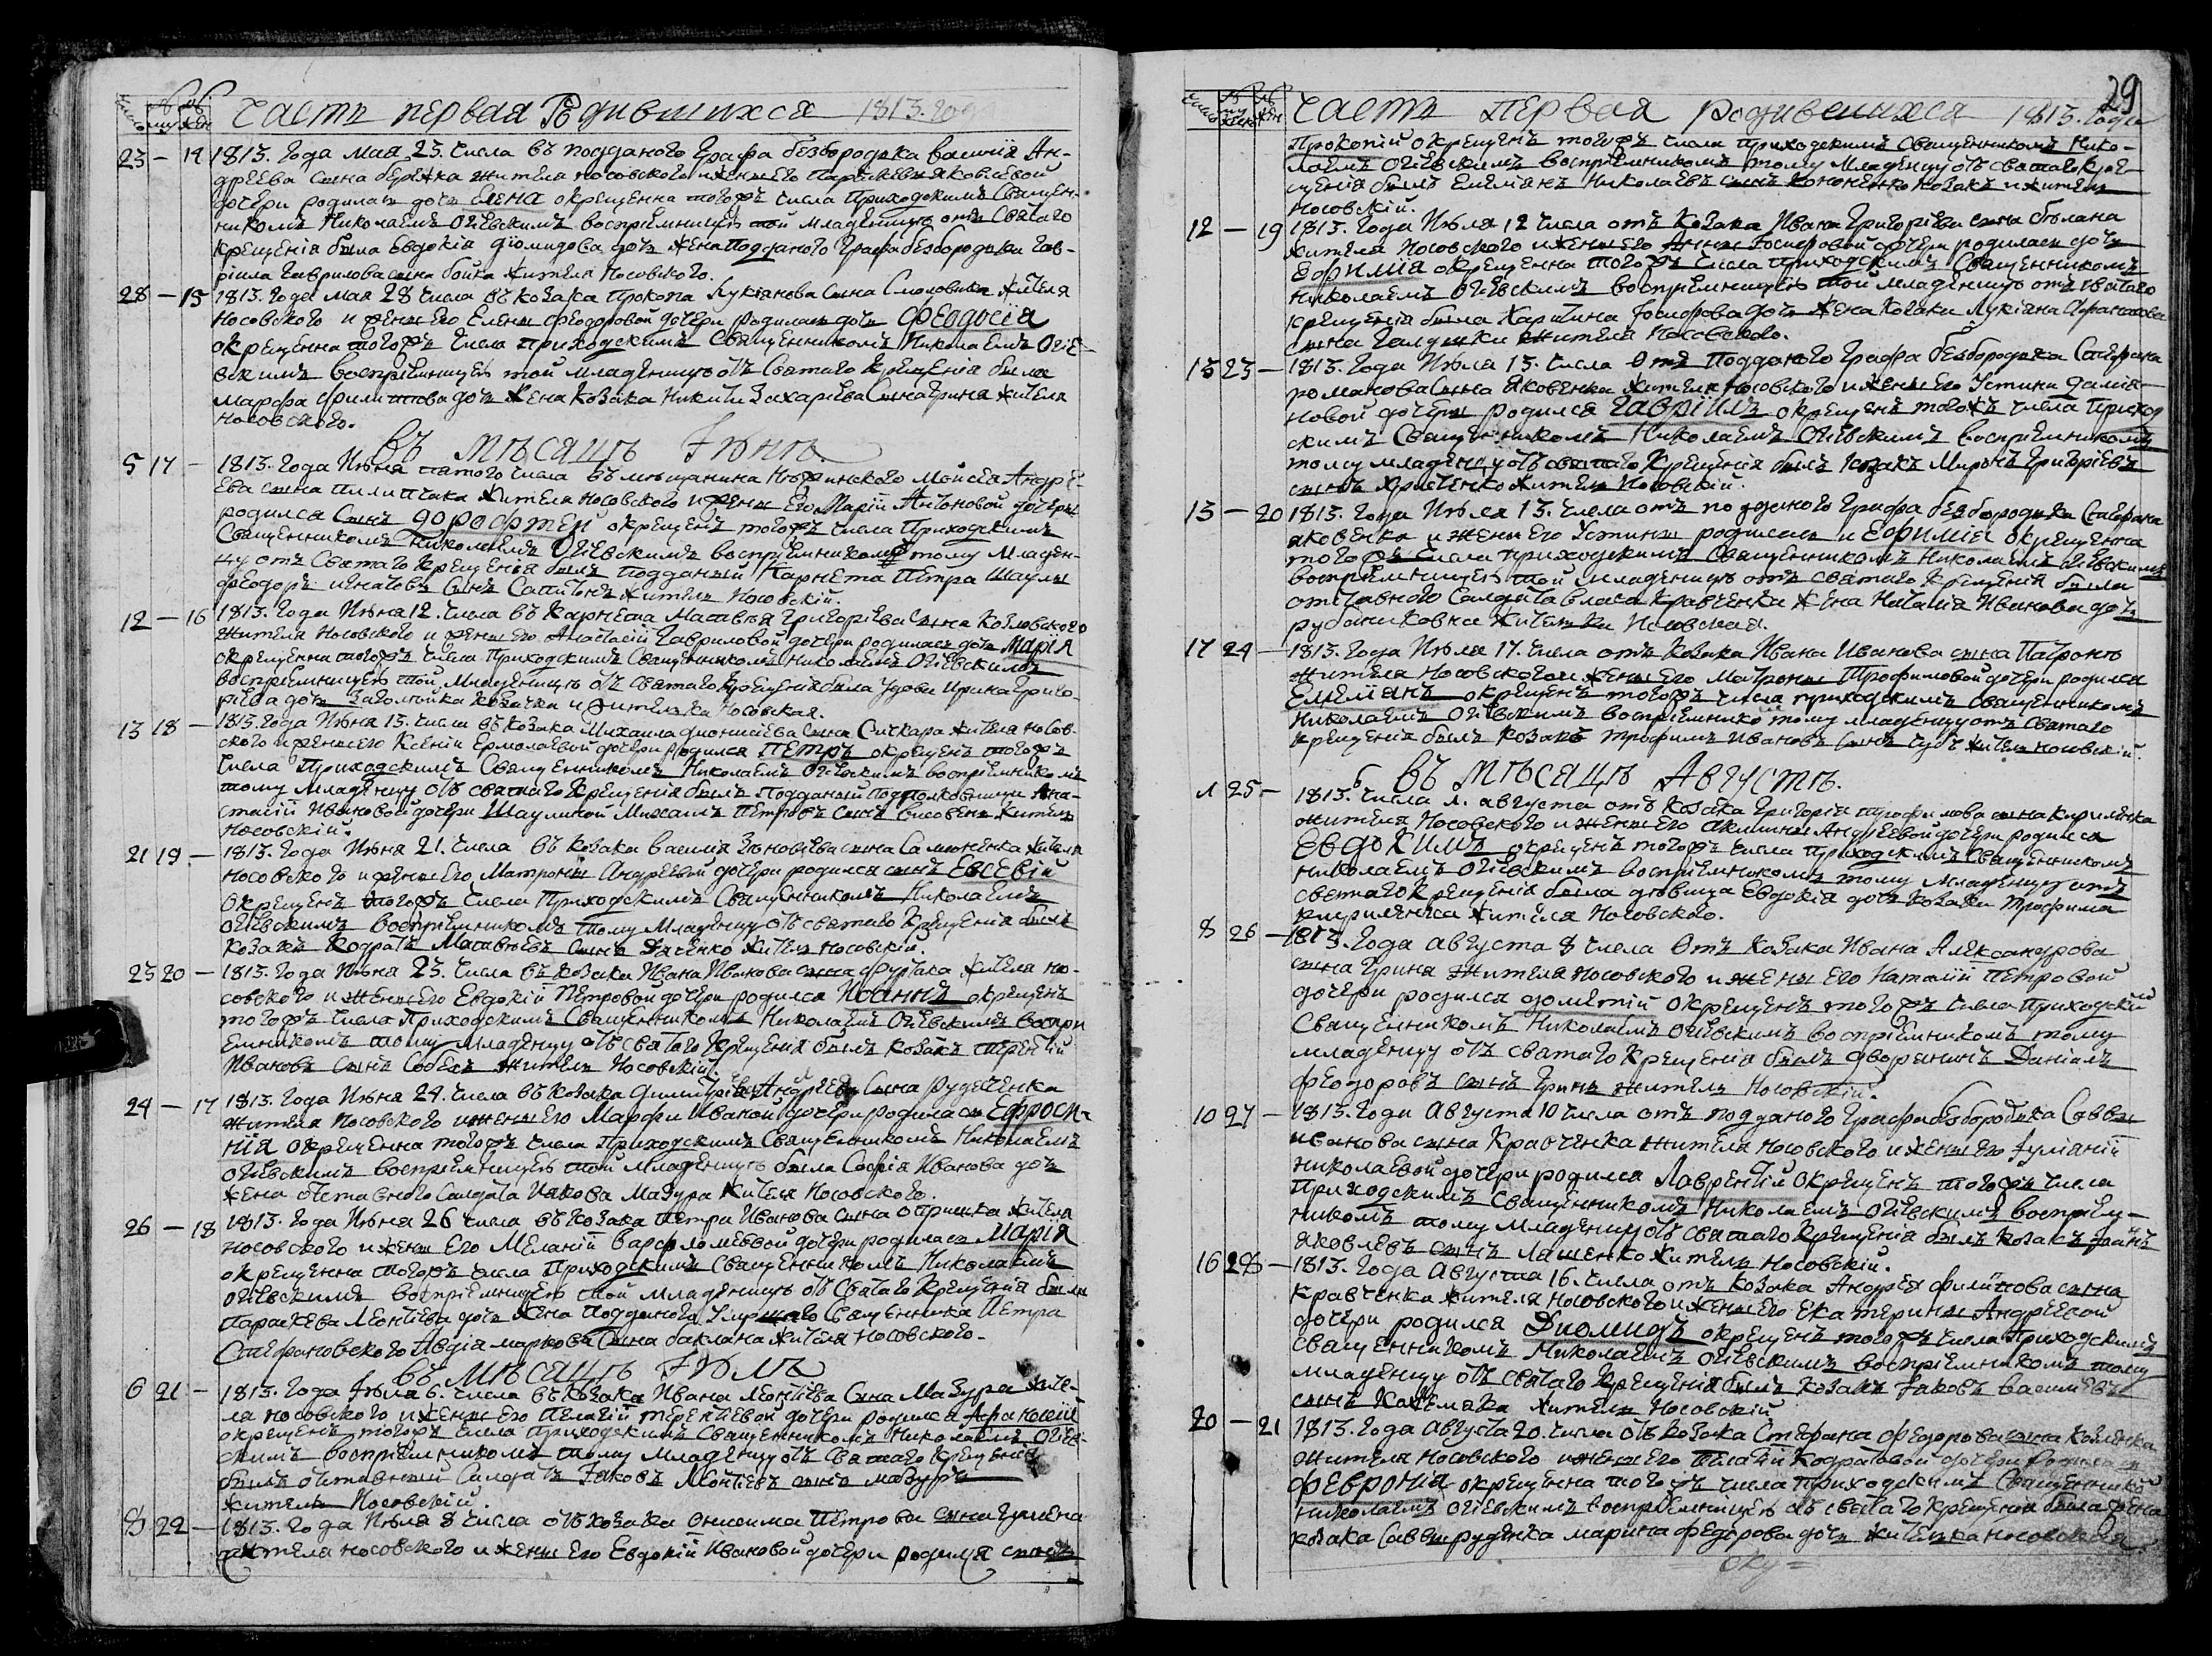 Часть первая Родившихся 1813. года
23 – 14 1813. Года Мая 23. числа въ подданого Графа безбородька василія Ан-
дреева сына бережка жителя носовского и жены его Параскевы яковлевой
дочери родилась дочь Елена окрещенна тогожъ числа Приходскимъ Священ-
никомъ Николаемъ Огіевскимъ воспріемницею той младеницѣ отъ Святаго
крещенія была Евдокія діомидова дочь жена подданого Графа безбородька Гав-
ріила Гаврилова сына бойка жителя Носовского.
28 – 15 1813. Года мая 28 числа въ козака Прокопа Лукіанова сына Смоловика жителя
Носовского и жены его Елены Феодоровой дочери родилась дочь Феодосія
окрещенна тогожъ числа приходскимъ Священникомъ Николаемъ Огіе-
вскимъ воспріемницею той младеницѣ отъ Святаго Крещенія была
Марфа дочь жена Козака Никиты Захаріева Сына Грина жителя
Носовского.
въ мѣсяцѣ Іюнѣ.
5 17 – 1813. Года Іюня пятого числа въ мѣщанина Нѣжинского Мойсея Андре-
ева сына пилипчака жителя Носовского и жены Его Маріи Антоновой дочери
родился Сынъ дорофтей окрещенъ тогожъ числа Приходскимъ
Священникомъ Николаемъ Огіевскимъ воспріемникомъ тому Младен-
цу отъ Святаго Крещенія былъ подданый Карнета Петра Шаулы
Феодоръ игнатовъ сынъ жителъ Носовскій.
12 – 16 1813. Года Іюня 12. числа въ Карнета Матвѣя Григоріева сына Козловского
жителя Носовского и жены его Анастасіи Гавриловой дочери родилась дочь Марія
окрещенна тогожъ числа Приходскимъ Священникомъ Николаемъ Огіевскимъ
воспріемницею той Младеницѣ отъ Святаго Крещенія была удова Ирина Григо-
ріева дочь козачка и жителька Носовская.
13 18 – 1813. Года Іюня 13. числа въ козака Михаила дионисіева сына Сличкара жителя носов-
ского и жены его Ксеніи Ермолаевой дочери родился Петръ окрещенъ тогожъ
числа Приходскимъ Священникомъ Николаемъ Огіевскимъ воспріемникомъ
тому Младенцу отъ святаго Крещенія былъ Подданый подполковници Ана-
стасіи Ивановой дочери Шаулиной Михаилъ Петровъ сынъ жителъ
Носовскій.
21 19 – 1813. Года Іюня 21. числа въ козака василія Зѣновіева сына Самойленка жителя
носовского и жены Его Матроны Андреевой дочери родился сынъ Евсевій
окрещенъ тогожъ числа Приходскимъ Священникомъ Николаемъ
огіевскимъ воспріемникомъ тому Младенцу отъ святаго Крещенія былъ
козакъ Кодратъ Матвѣевъ Сынъ Дяченко жителъ Носовскій.
23 20 – 1813. Года Іюня 23. числа въ козака Ивана Иванова сына жителя но-
совского и жены его Евдокіи Петровой дочери родился Иоаннъ окрещенъ
тогожъ числа Приходскимъ Священникомъ Николаемъ Огіевскимъ воспрі
емникомъ тому Младенцу отъ святаго Крещенія былъ козакъ терентій
Ивановъ сынъ жителъ Носовскій.
24 – 17 1813. Года Іюня 24. числа въ козака Димитрія Андреева Сына Рудченка
жителя Носовского и жены его Марфи Ивановой дочери родилась Ефроси-
нія окрещенна тогожъ числа Приходскимъ Священникомъ Николаемъ
огіевскимъ воспріемницею той младеницѣ была Софія Иванова дочь
жена отставного Салдата Иякова Мазура жителя Носовского.
26 – 18 1813. Года Іюня 26 числа въ козака Петра Иванова сына опришка жителя
Носовского и жены Его Меланіи варфоломеевой дочери родилась Марія
окрещенна тогожъ числа Приходскимъ Священникомъ Николаемъ
огіевскимъ воспріемницею той Младеницѣ отъ Святаго Крещенія была
Параскева Леонтіева дочь жена подданого Священника Петра
Стефановского Авдія маркова Сына баклана жителя Носовского.
въ мѣсяцѣ Іюлѣ
6 21 – 1813. Года Іюля 6. числа въ козака Ивана Леонтіева Сына Мазура жите-
ля носовского и жены Его Пелагіи терентіевой дочери родился Афанасій
окрещенъ тогожъ числа приходскимъ Священникомъ Николаемъ Огіев-
скимъ воспріемникомъ тому Младенцу отъ Святаго Крещенія
былъ отставный Салдатъ Іаковъ Леонтіевъ сынъ мазуръ
жителъ Носовскій.
8 22 – 1813. года Іюля 8 числа отъ козака Онисима Петрова сына
жителя носовского и жены Его Евдокіи Ивановой дочери родился сынъ
29
Часть первая Родившихся 1813. Года
Прокопій окрещенъ тогожъ числа приходскимъ Священникомъ Нико-
лаемъ Огіевскимъ воспріемникомъ тому Младенцу отъ святаго креще-
щенія былъ Емеліанъ Николаевъ сынъ Кононенко козакъ и жителъ
Носовскій.
12 – 19 1813. Года Іюля 12 числа отъ козака Ивана Григоріева сына бѣлана
жителя Носовского и жены его Анны Іосифовой дочери родилась дочь
Ефимія окрещенна тогожъ числа приходскимъ Священникомъ
Николаемъ Огіевскимъ воспріемницею той младеницѣ отъ святаго
крещенія была Харитина Іосифова дочь жена Козака Лукіана Афанасова
сына Галушки жителя Носовского.
15 23 – 1813. Года Іюля 13. числа отъ Подданого Графа безбородька Стефана
романова сына яковенка жителя носовского и жены Его Устини даміа-
новой дочери родился Гавріилъ окрещенъ тогожъ числа приход
скимъ Священникомъ Николаемъ Огіевскимъ воспріемникомъ
тому младенцу отъ святаго Крещенія былъ козакъ Миронъ Григоріевъ
сынъ Христенко жителъ Носовскій.
13 – 20 1813. Года Іюля 13. числа отъ подданого Графа безбородька Стефана
яковенка и жены Его Устины родилась и Ефимія окрещенна
тогожъ числа приходскимъ Священникомъ Николаемъ Огіевскимъ
воспріемницею той младеницѣ отъ святаго Крещенія была
отставного Салдата власа кравченка жена Наталія Иванова дочь
жителька Носовская.
17 24 – 1813. Года Іюля 17. числа отъ козака Ивана Иванова сына
жителя Носовского и жены Его Матроны Трофимовой дочери родился
Емеліанъ окрещенъ тогожъ числа приходскимъ священникомъ
Николаемъ Огіевскимъ воспріемнико тому младенцу отъ святаго
крещенія былъ козакъ трофимъ Ивановъ сынъ жителъ носовскій.
въ мѣсяцѣ Августѣ.
1 25 – 1813. числа 1. августа отъ козака Григорія трофимова сына кириленка
жителя Носовского и жены Его Акилины Андреевой дочери родился
Евдокимъ окрещенъ тогожъ числа приходскимъ Священникомъ
Николаемъ Огіевскимъ воспріемникомъ тому младенцу отъ
светаго крещенія была дѣвица Евдокія дочь козака Трофима
кириленка жителя Носовского.
8 26 – 1813. Года августа 8 числа отъ козака Ивана Александрова
сына Грина жителя носовского и жены его Наталіи Петровой
дочери родился дометій окрещенъ тогожъ числа Приходскимъ
Священникомъ Николаемъ Огіевскимъ воспріемникомъ тому
младенцу отъ святаго крещенія былъ дворенинъ Даніилъ
феодоровъ сынъ Гринъ жителъ Носовскій.
10 27 – 1813. Года Августа 10 числа отъ подданого Графа безбородька Саввы
иванова сына Кравченка жителя Носовского и жены его Іуліаніи
николаевой дочери родился Лаврентій окрещенъ тогожъ числа
Приходскимъ Священникомъ Николаемъ Огіевскимъ воспріем-
никомъ тому Младенцу отъ святаго Крещенія былъ козакъ
яковлевъ сынъ Ляшенко жителъ Носовскій.
16 28 – 1813. Года Августа 16. числа отъ козака Андрея филипова сына
кравченка жителя Носовского и жены Его Екатерины Андреевой
дочери родился Диомидъ окрещенъ тогожъ числа Приходскимъ
священникомъ Николаемъ Огіевскимъ воспріемникомъ тому
младенцу отъ святаго Крещенія былъ козакъ Іаковъ василіевъ
сынъ Кожемяка жителъ Носовскій
20 – 21 1813. Года августа 20. числа отъ козака Стефана федорова сына
жителя Носовского и жены его Пелагіи Кодратовой дочери родилась
феврония окрещенна тогожъ числа приходскимъ Священникомъ
Николаемъ Огіевскимъ воспріемницею отъ святаго крещенія была жена
козака Саввы руденка марина федорова дочь жителька носовская.